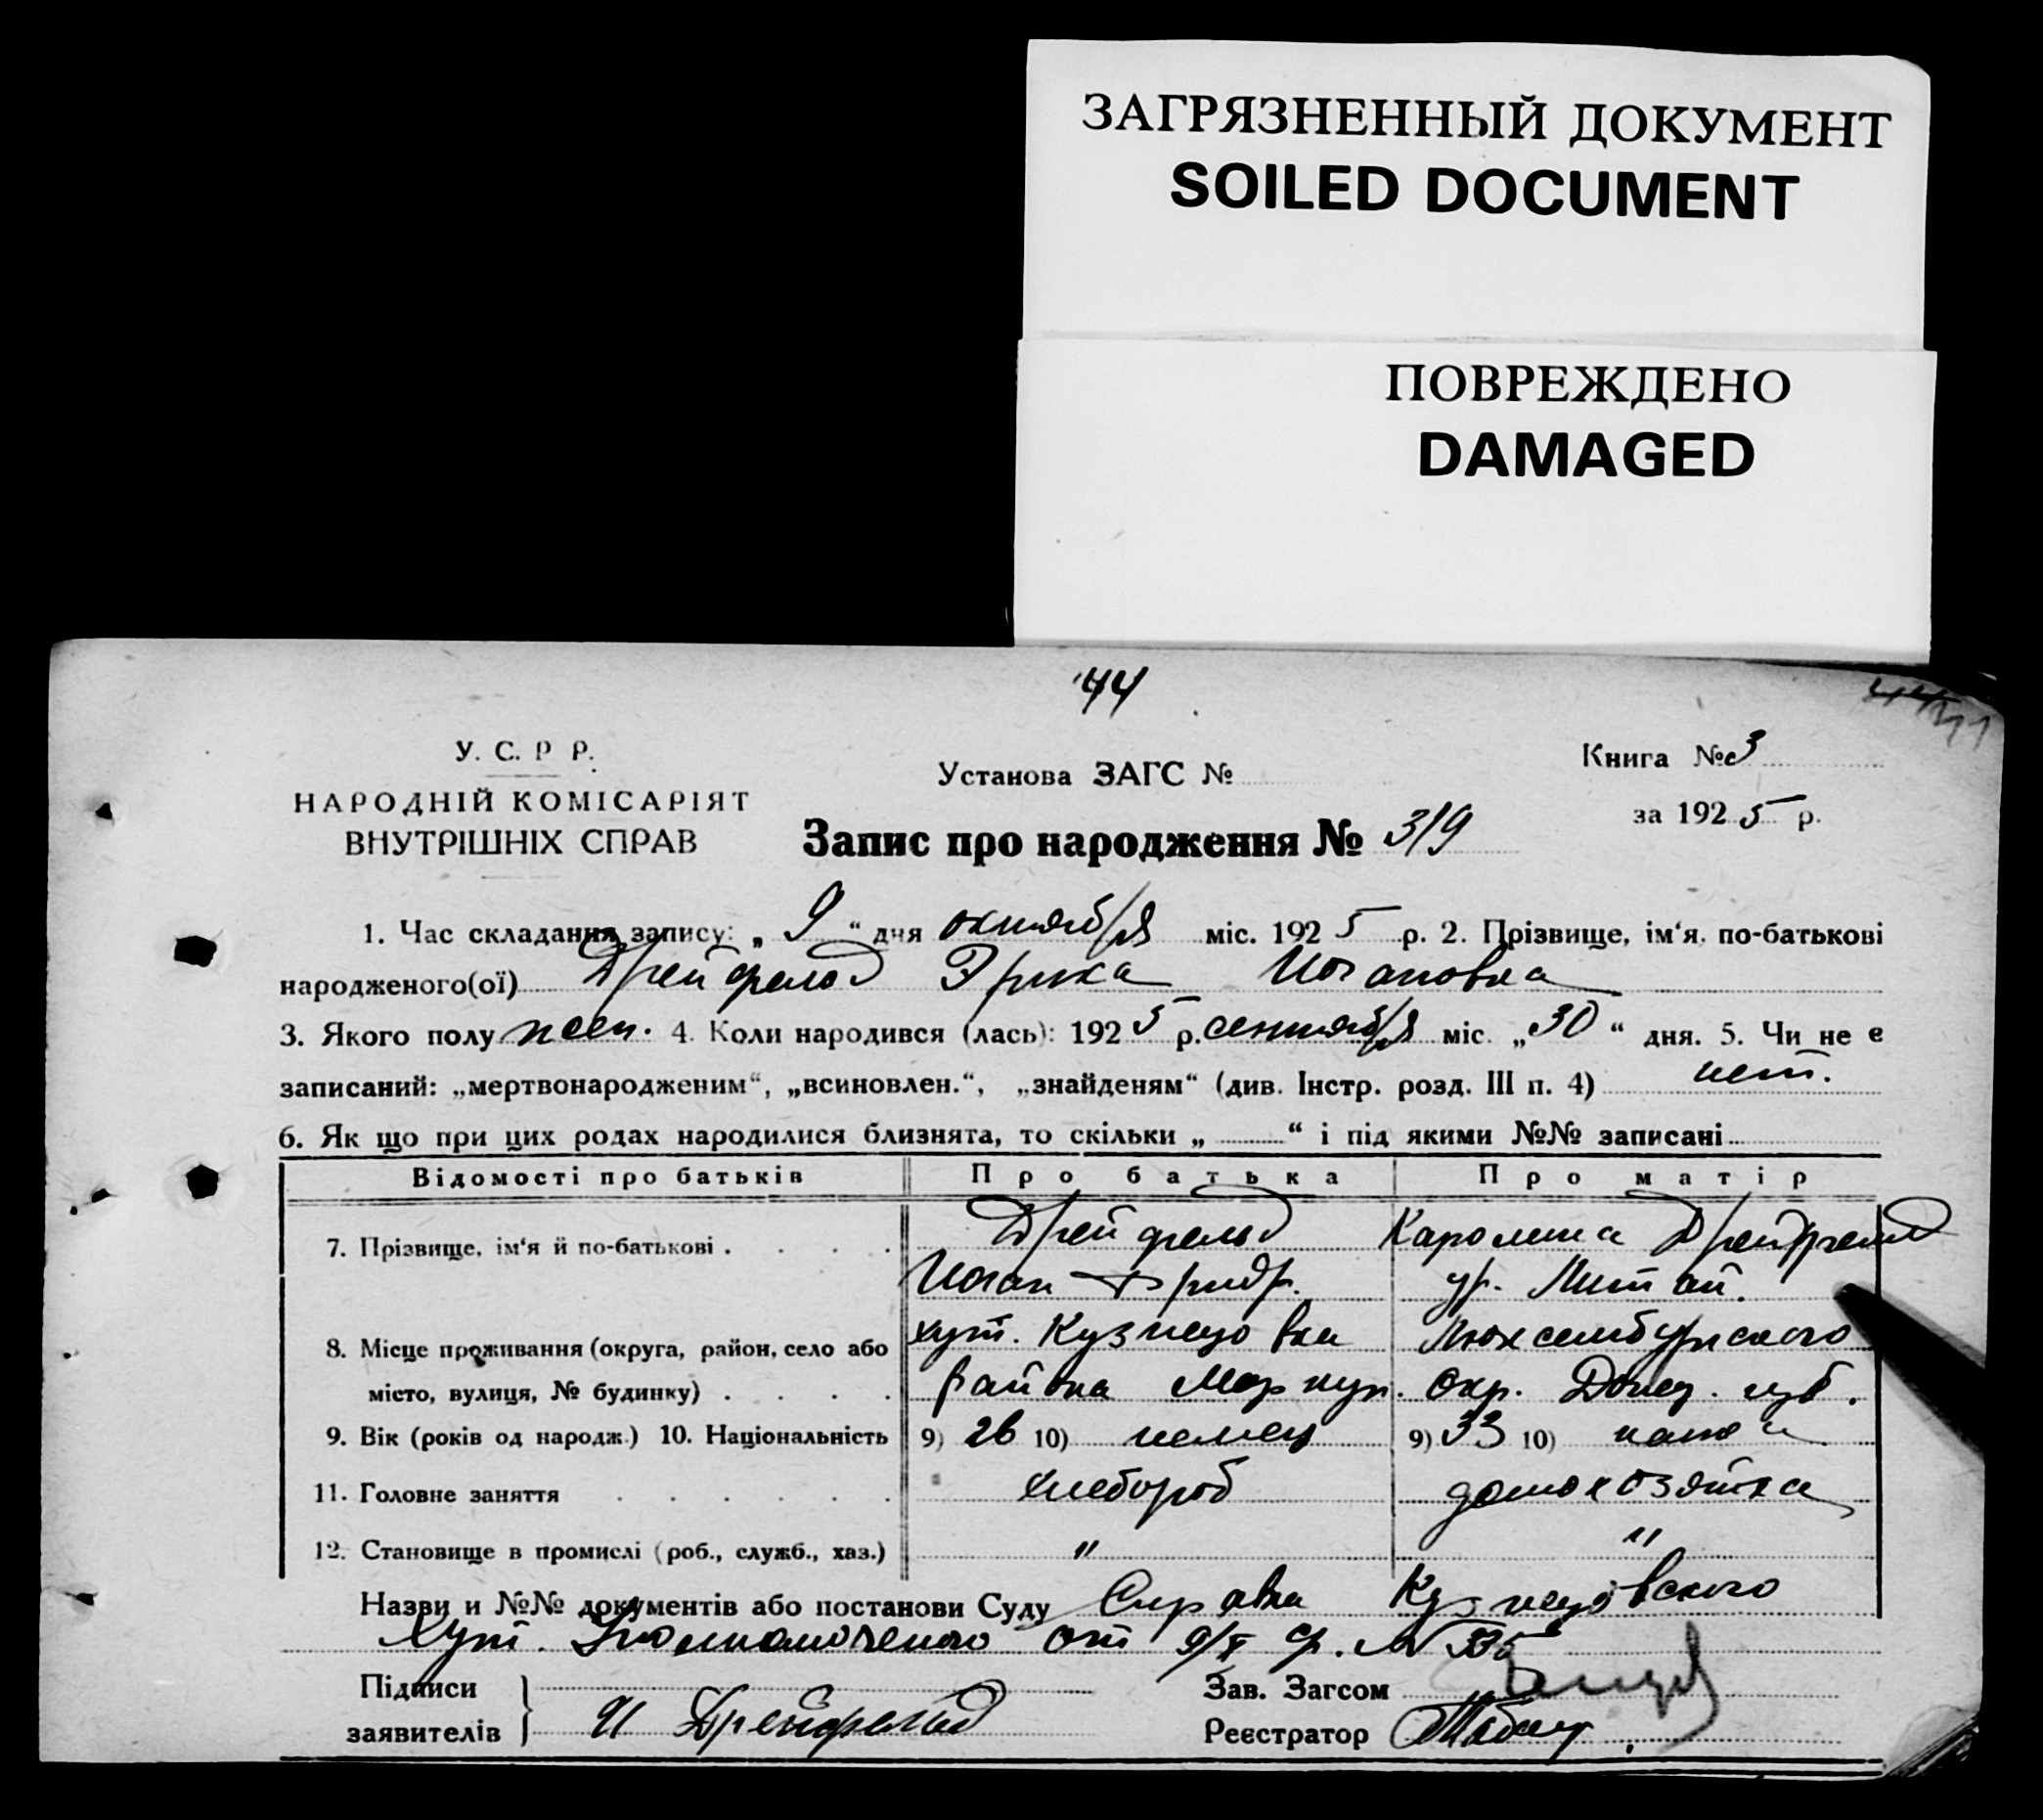 ЗАГРЯЗНЕННЫЙ ДОКУМЕНТ
SOILED DOCUMENT
ПОВРЕЖДЕНО
DAMAGED
44
У. С. Р Р.
НАРОДНІЙ КОМІСАРІЯТ
ВНУТРІШНІХ СПРАВ
Установа ЗАГС №
Книга № 3
за 1925 р.
Запис про народження № 319
1. Час складання запису: „ 9 “ дня октября міс. 1925 р. 2. Прізвище, ім‘я, по-батькові
народженого(ої) Дрейфельд Эрика Иогановна
3. Якого полу жен. 4. Коли народився (лась): 1925 р. сентября міс. „30“ дня. 5. Чи не є
записаний: „мертвонародженим“, „всиновлен.“, „знайденям“ (див. Інстр. розд. III п. 4) нет.
6. Як що при цих родах народилися близнята, то скільки „ “ і під якими №№ записані
Відомості про батьків Про батька Про матір
7. Прізвище, ім‘я й по-батькові . . . . Дрейфельд Каролина Дрейфельд
Иоган Фридр. ур.
8. Місце проживання (округа, район, село або хут. Кузнецовка Люксембургского
місто, вулиця, № будинку) . . . . района Мариуп. Окр. Донец. губ.
9. Вік (років од народж.) 10. Національність 9) 26 10) немец 9) 33 10) немка
11. Головне заняття . . . . . . хлебороб домохозяйка
12. Становище в промислі (роб., служб., хаз.) " "
Назви и №№ документів або постанови Суду Справка Кузнецовского
Хут. Уполномоченого от 9/X ср. № 335
Підписи
заявителів И Дрейфельд
Зав. Загсом
Реєстратор